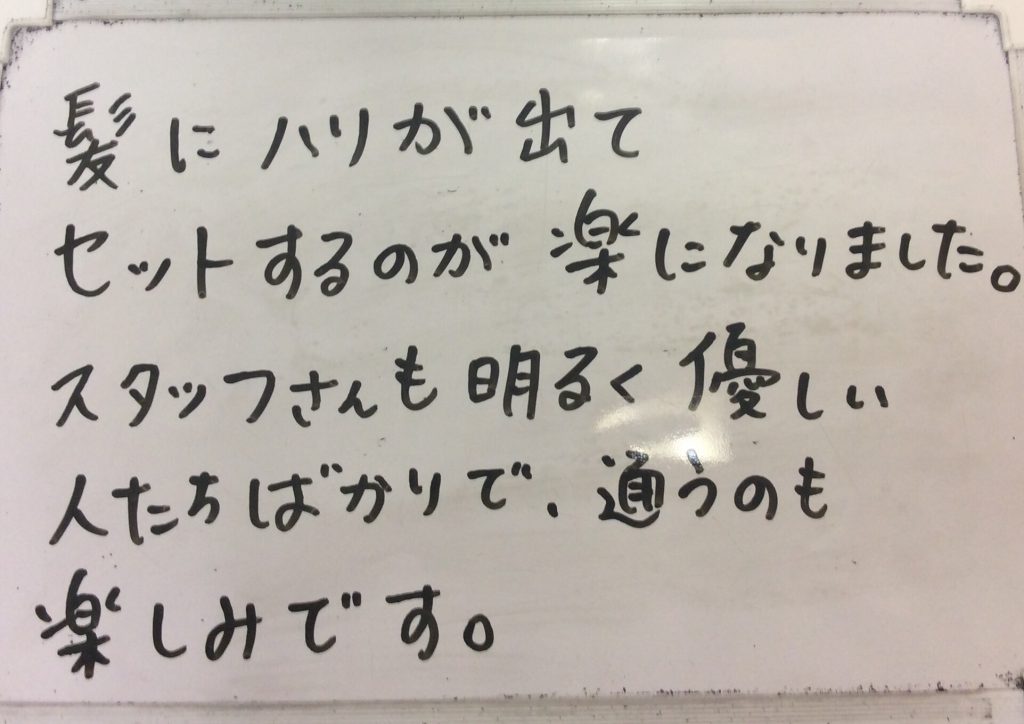 髪にハリが出て
セットするのが楽になりました。
スタッフさんも明るく優しい
人たちばかりで、通うのも
楽しみです。